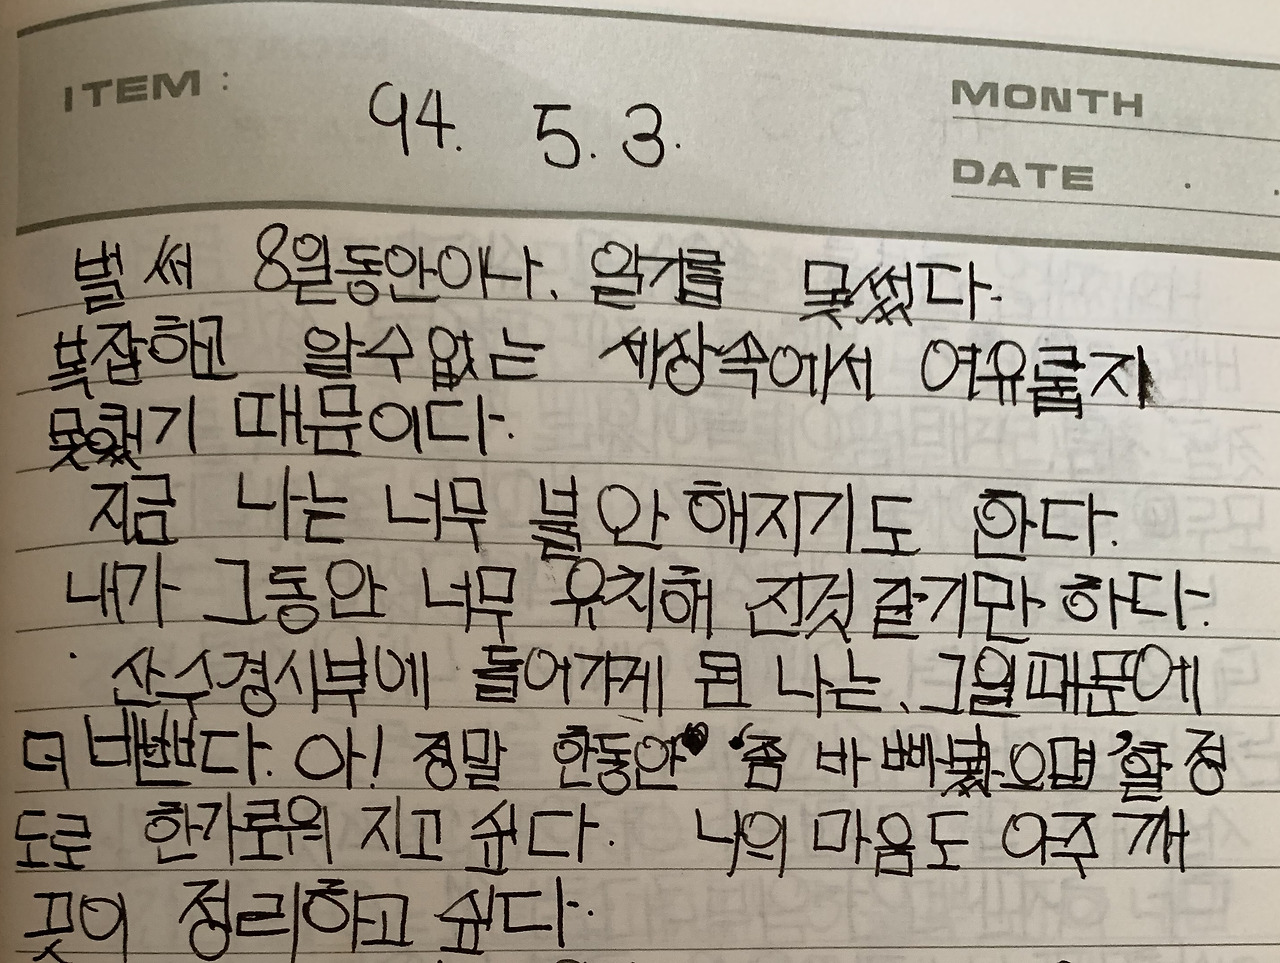 ITEM : 94. 5. 3.
MONTH
DATE . .
벌써 8일동안이나, 일기를 못썼다.
복잡하고 알수없는 세상속에서 여유롭지
못했기 때문이다.
지금 나는 너무 불안해지기도 한다.
내가 그동안 너무 유치해 진것 같기만 하다.
산수경시부에 들어가게 된 나는, 그일때문에
더 바빴다. 아! 정말 한동안 '좀 바빠봤으면' 할 정
도로 한가로워 지고 싶다. 나의 마음도 아주 깨
끗이 정리하고 싶다.